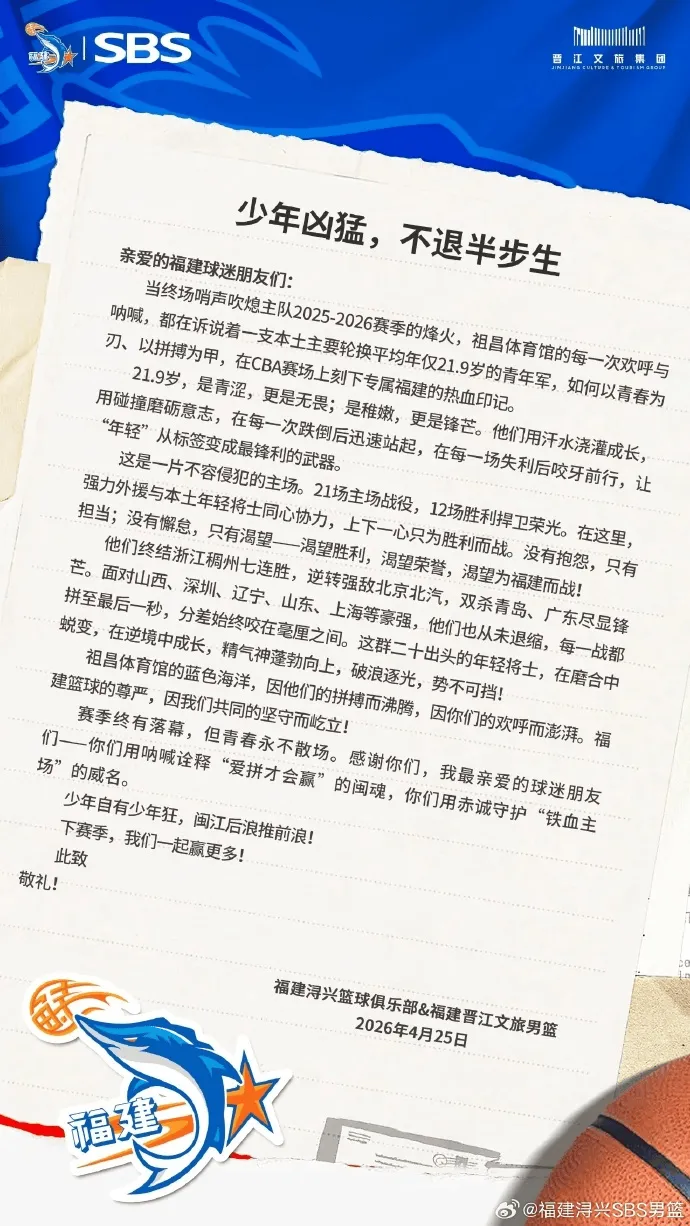 福建
SBS
晋江文旅集团
JINJIANG CULTURE & TOURISM GROUP
少年凶猛，不退半步生
亲爱的福建球迷朋友们：
当终场哨声吹熄主队2025-2026赛季的烽火，祖昌体育馆的每一次欢呼与
呐喊，都在诉说着一支本土主要轮换平均年仅21.9岁的青年军，如何以青春为
刃、以拼搏为甲，在CBA赛场上刻下专属福建的热血印记。
21.9岁，是青涩，更是无畏；是稚嫩，更是锋芒。他们用汗水浇灌成长，
用碰撞磨砺意志，在每一次跌倒后迅速站起，在每一场失利后咬牙前行，让
“年轻”从标签变成最锋利的武器。
这是一片不容侵犯的主场。21场主场战役，12场胜利捍卫荣光。在这里，
强力外援与本土年轻将士同心协力，上下一心只为胜利而战。没有抱怨，只有
担当；没有懈怠，只有渴望——渴望胜利，渴望荣誉，渴望为福建而战！
他们终结浙江稠州七连胜，逆转强敌北京北汽，双杀青岛、广东尽显锋
芒。面对山西、深圳、辽宁、山东、上海等豪强，他们也从未退缩，每一战都
拼至最后一秒，分差始终咬在毫厘之间。这群二十出头的年轻将士，在磨合中
蜕变，在逆境中成长，精气神蓬勃向上，破浪逐光，势不可挡！
祖昌体育馆的蓝色海洋，因他们的拼搏而沸腾，因你们的欢呼而澎湃。福
建篮球的尊严，因我们共同的坚守而屹立！
赛季终有落幕，但青春永不散场。感谢你们，我最亲爱的球迷朋友
们——你们用呐喊诠释“爱拼才会赢”的闽魂，你们用赤诚守护“铁血主
场”的威名。
少年自有少年狂，闽江后浪推前浪！
下赛季，我们一起赢更多！
此致
敬礼！
福建浔兴篮球俱乐部&福建晋江文旅男篮
2026年4月25日
福建
@福建浔兴SBS男篮